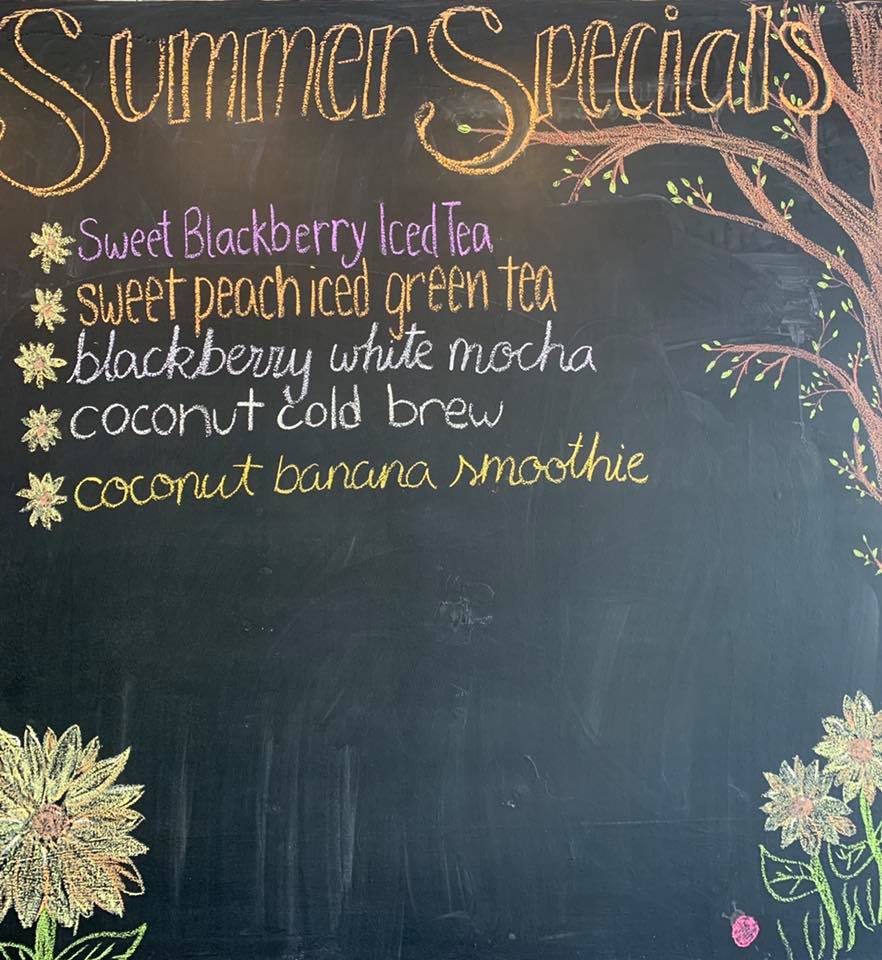 Summer Specials
Sweet Blackberry Iced Tea
sweet peach iced green tea
blackberry white mocha
coconut cold brew
coconut banana smoothie